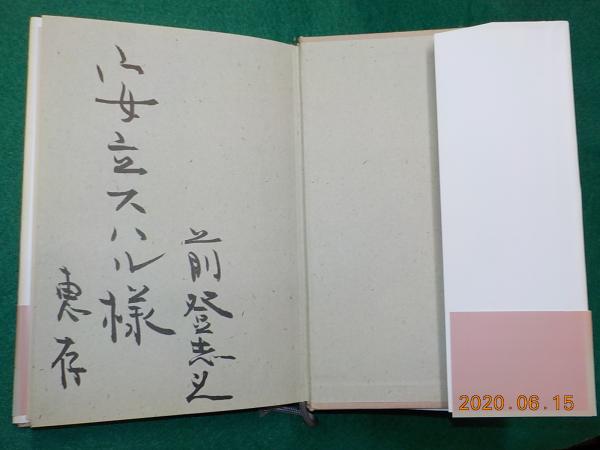 安立スハル様
前登志夫
恵存
2020.06.15